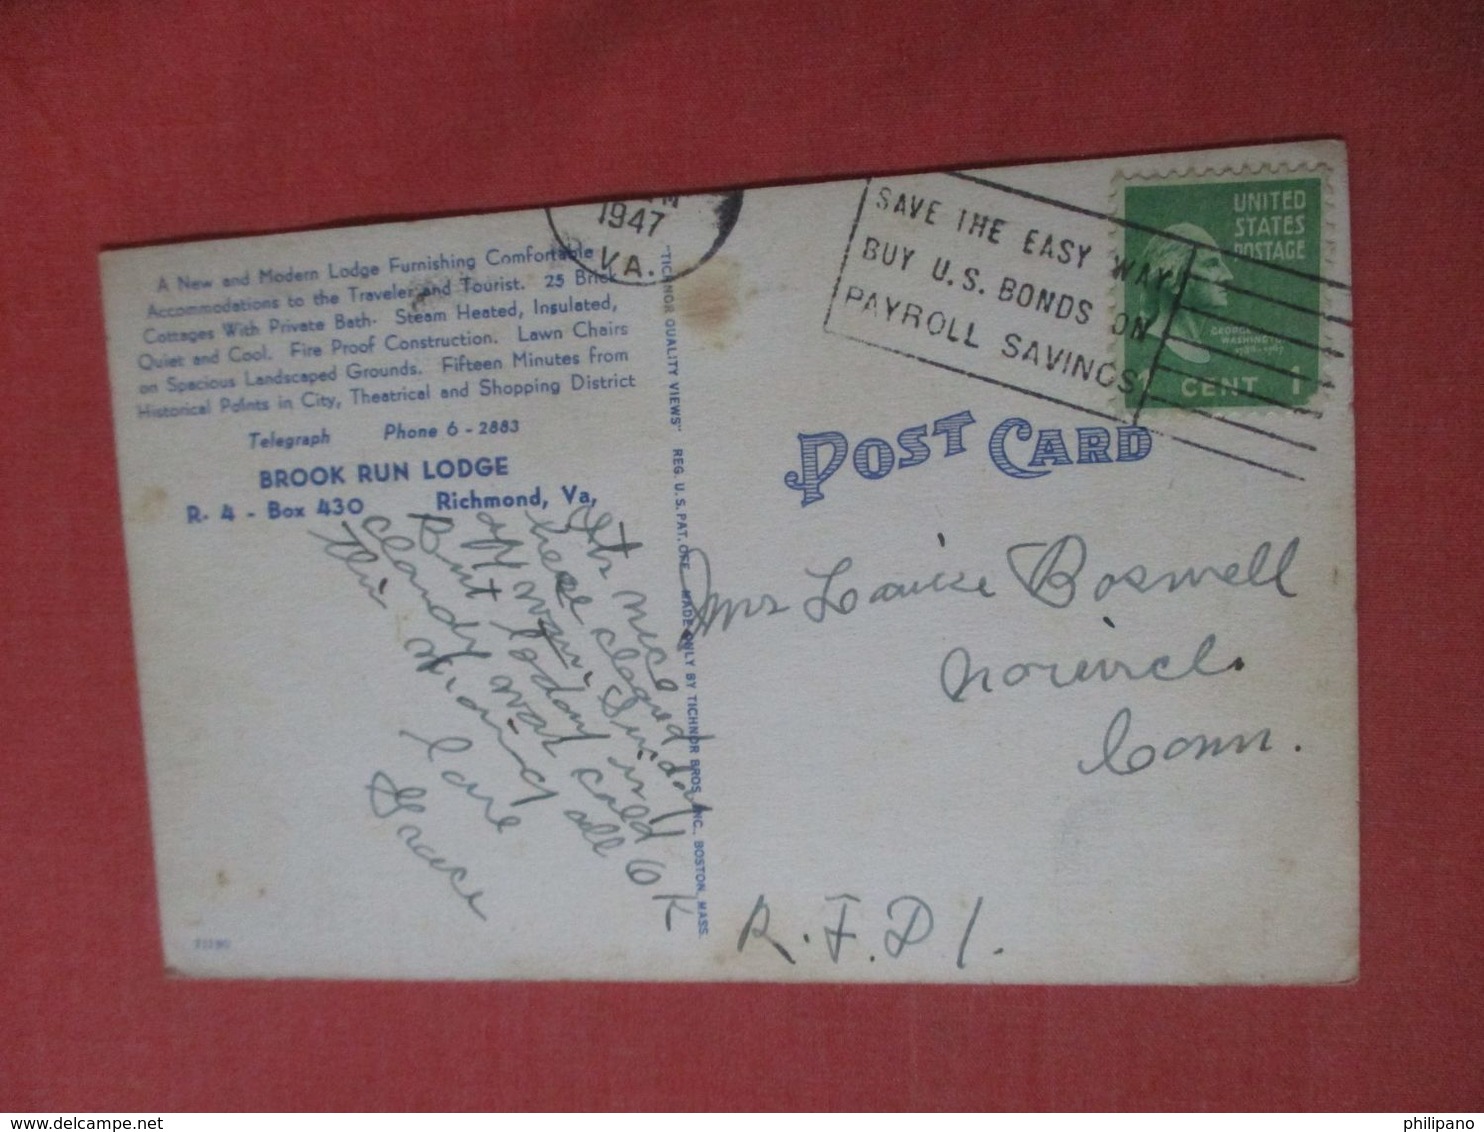 A New and Modern Lodge Furnishing Comfortable
Accommodations to the Traveler and Tourist. 25 Brick
Cottages With Private Bath. Steam Heated, Insulated,
Quiet and Cool. Fire Proof Construction. Lawn Chairs
on Spacious Landscaped Grounds. Fifteen Minutes from
Historical Points in City, Theatrical and Shopping District
Telegraph Phone 6-2883
BROOK RUN LODGE
R. 4 - Box 430 Richmond, Va,
nice
here cleared
off Sunday
But today all OK
cloudy cold
this
Love
Grace
"TICHNOR QUALITY VIEWS" REG. U.S. PAT. OFF. MADE ONLY BY TICHNOR BROS. INC., BOSTON, MASS.
1947
VA.
SAVE THE EASY WAY!
BUY U.S. BONDS ON
PAYROLL SAVINGS
UNITED
STATES
POSTAGE
GEORGE
WASHINGTON
1 CENT 1
POST CARD
Mrs Boswell
Norwich.
Conn.
R.F.D 1.
www.delcampe.net
philipano